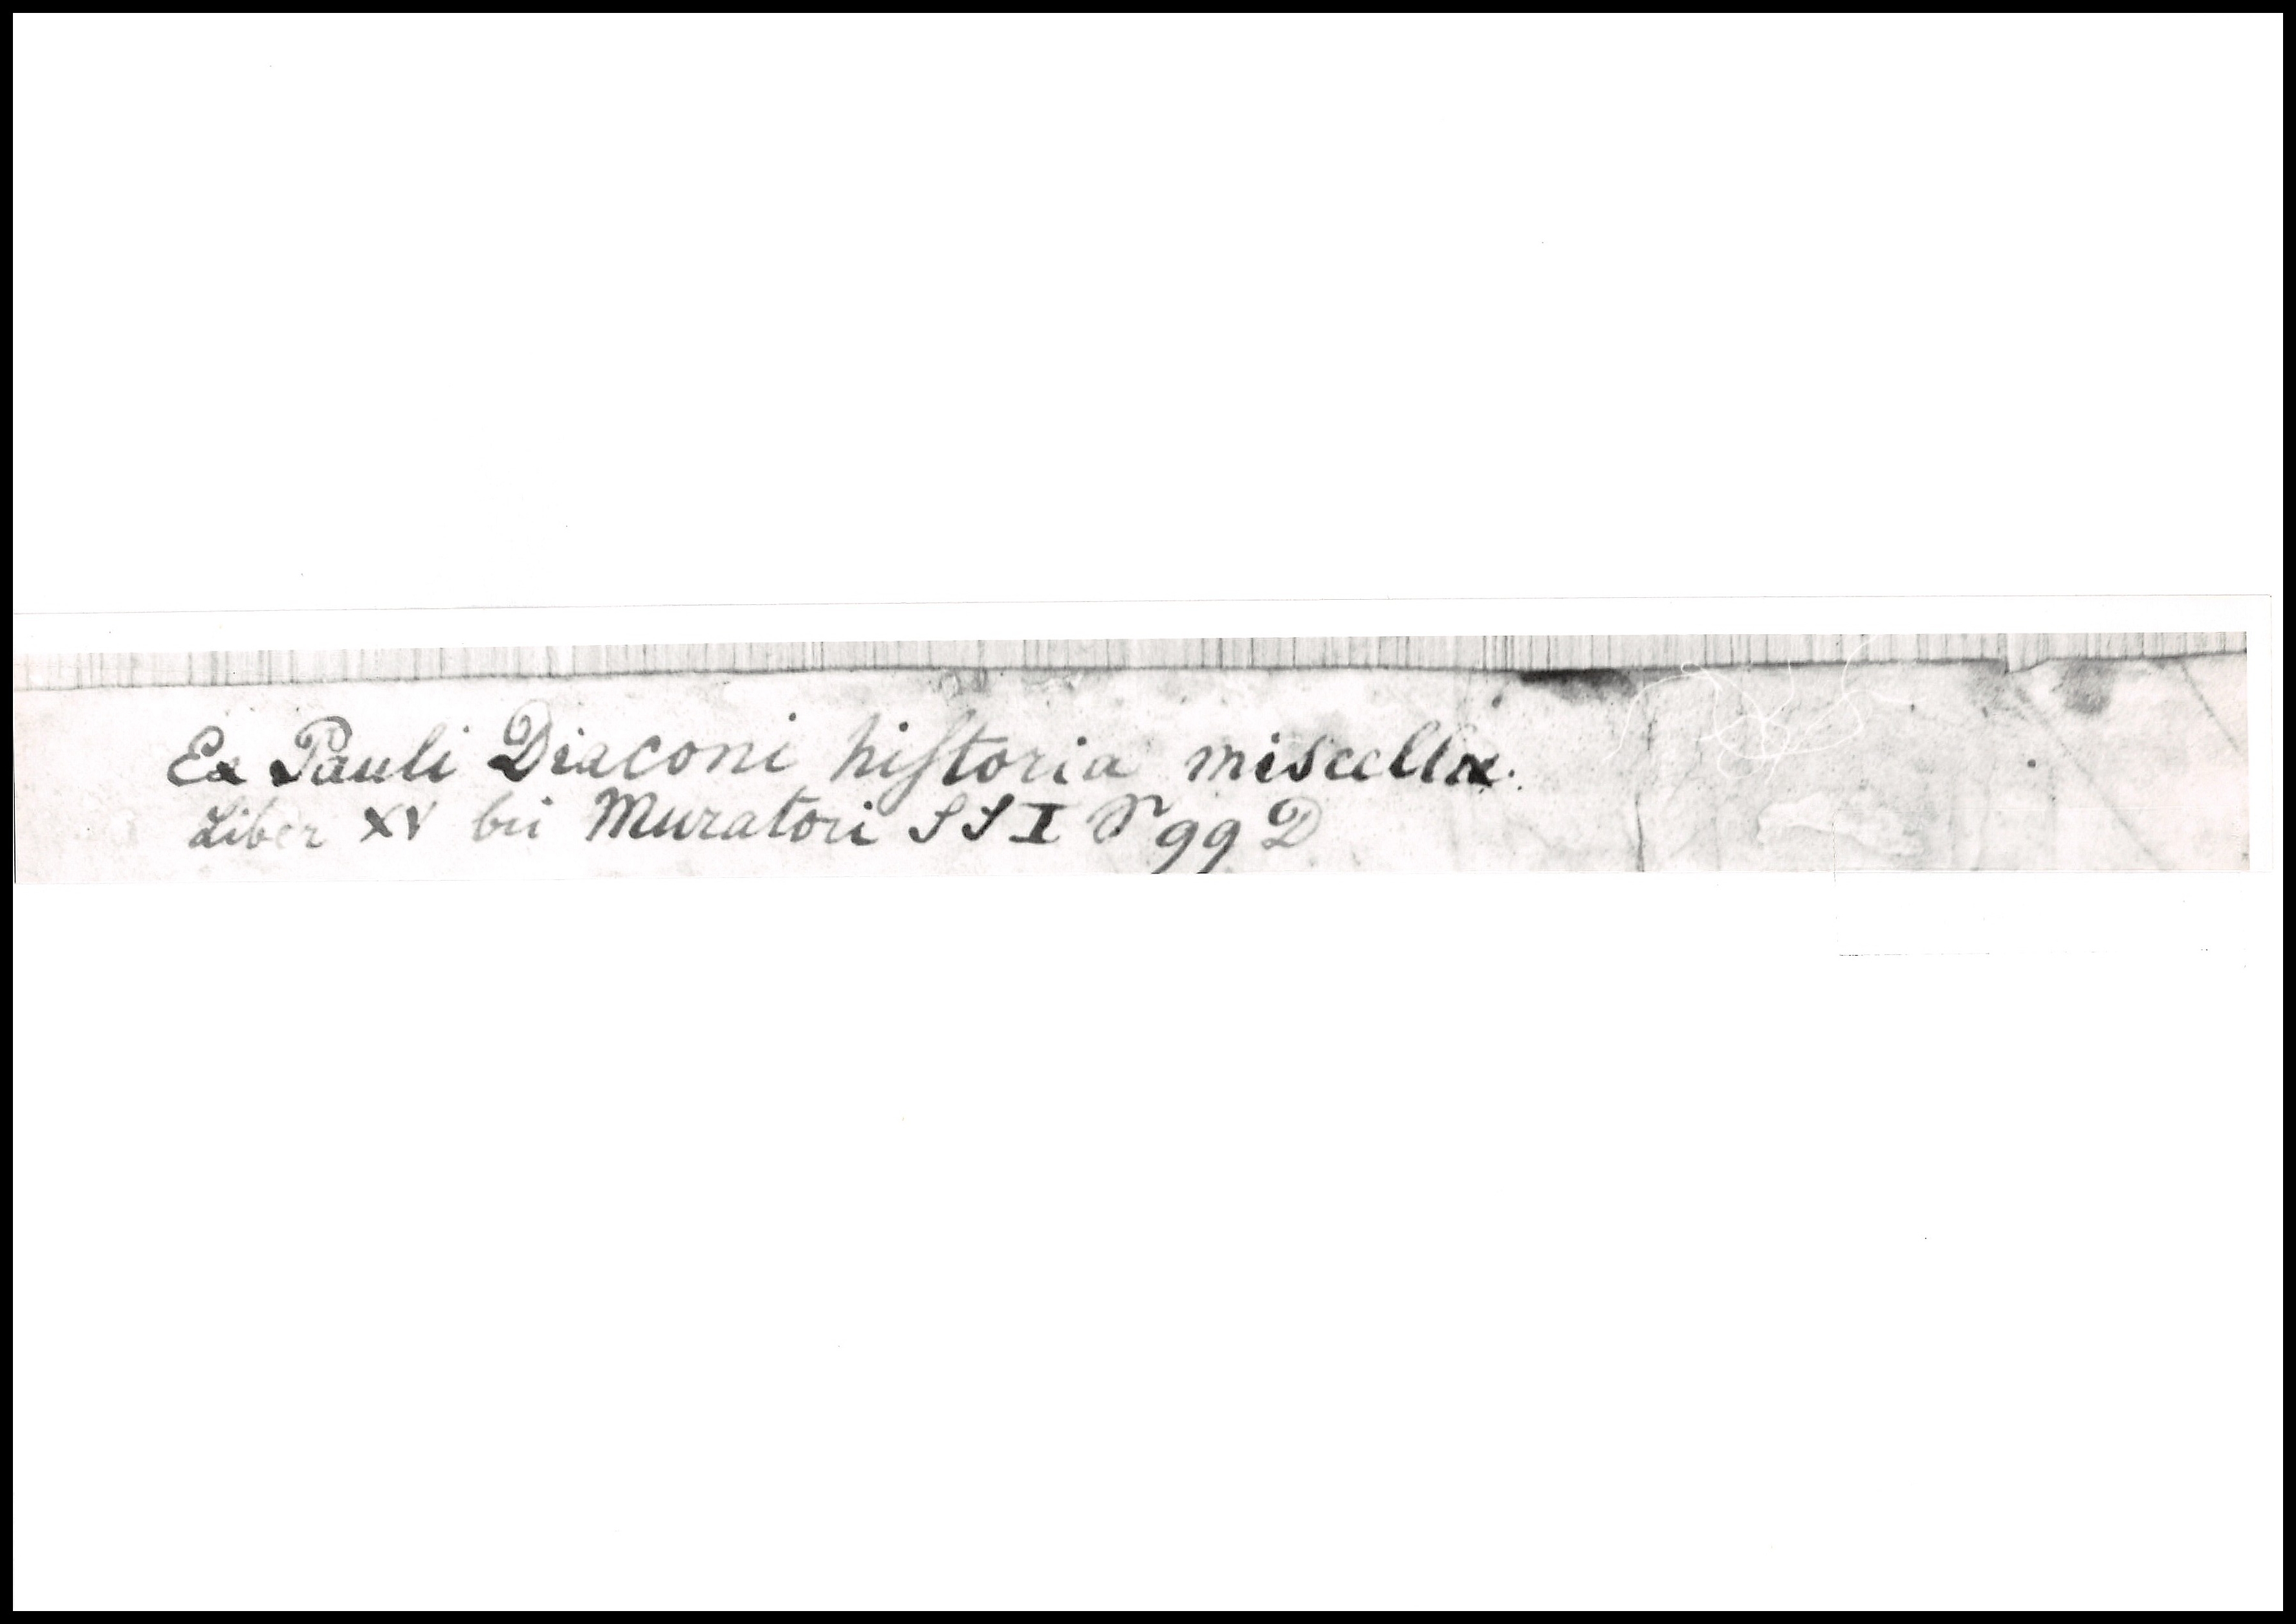 Ex Pauli Diaconi hiſtoria miscella.
Liber XV bei Muratori SS I S 99 D